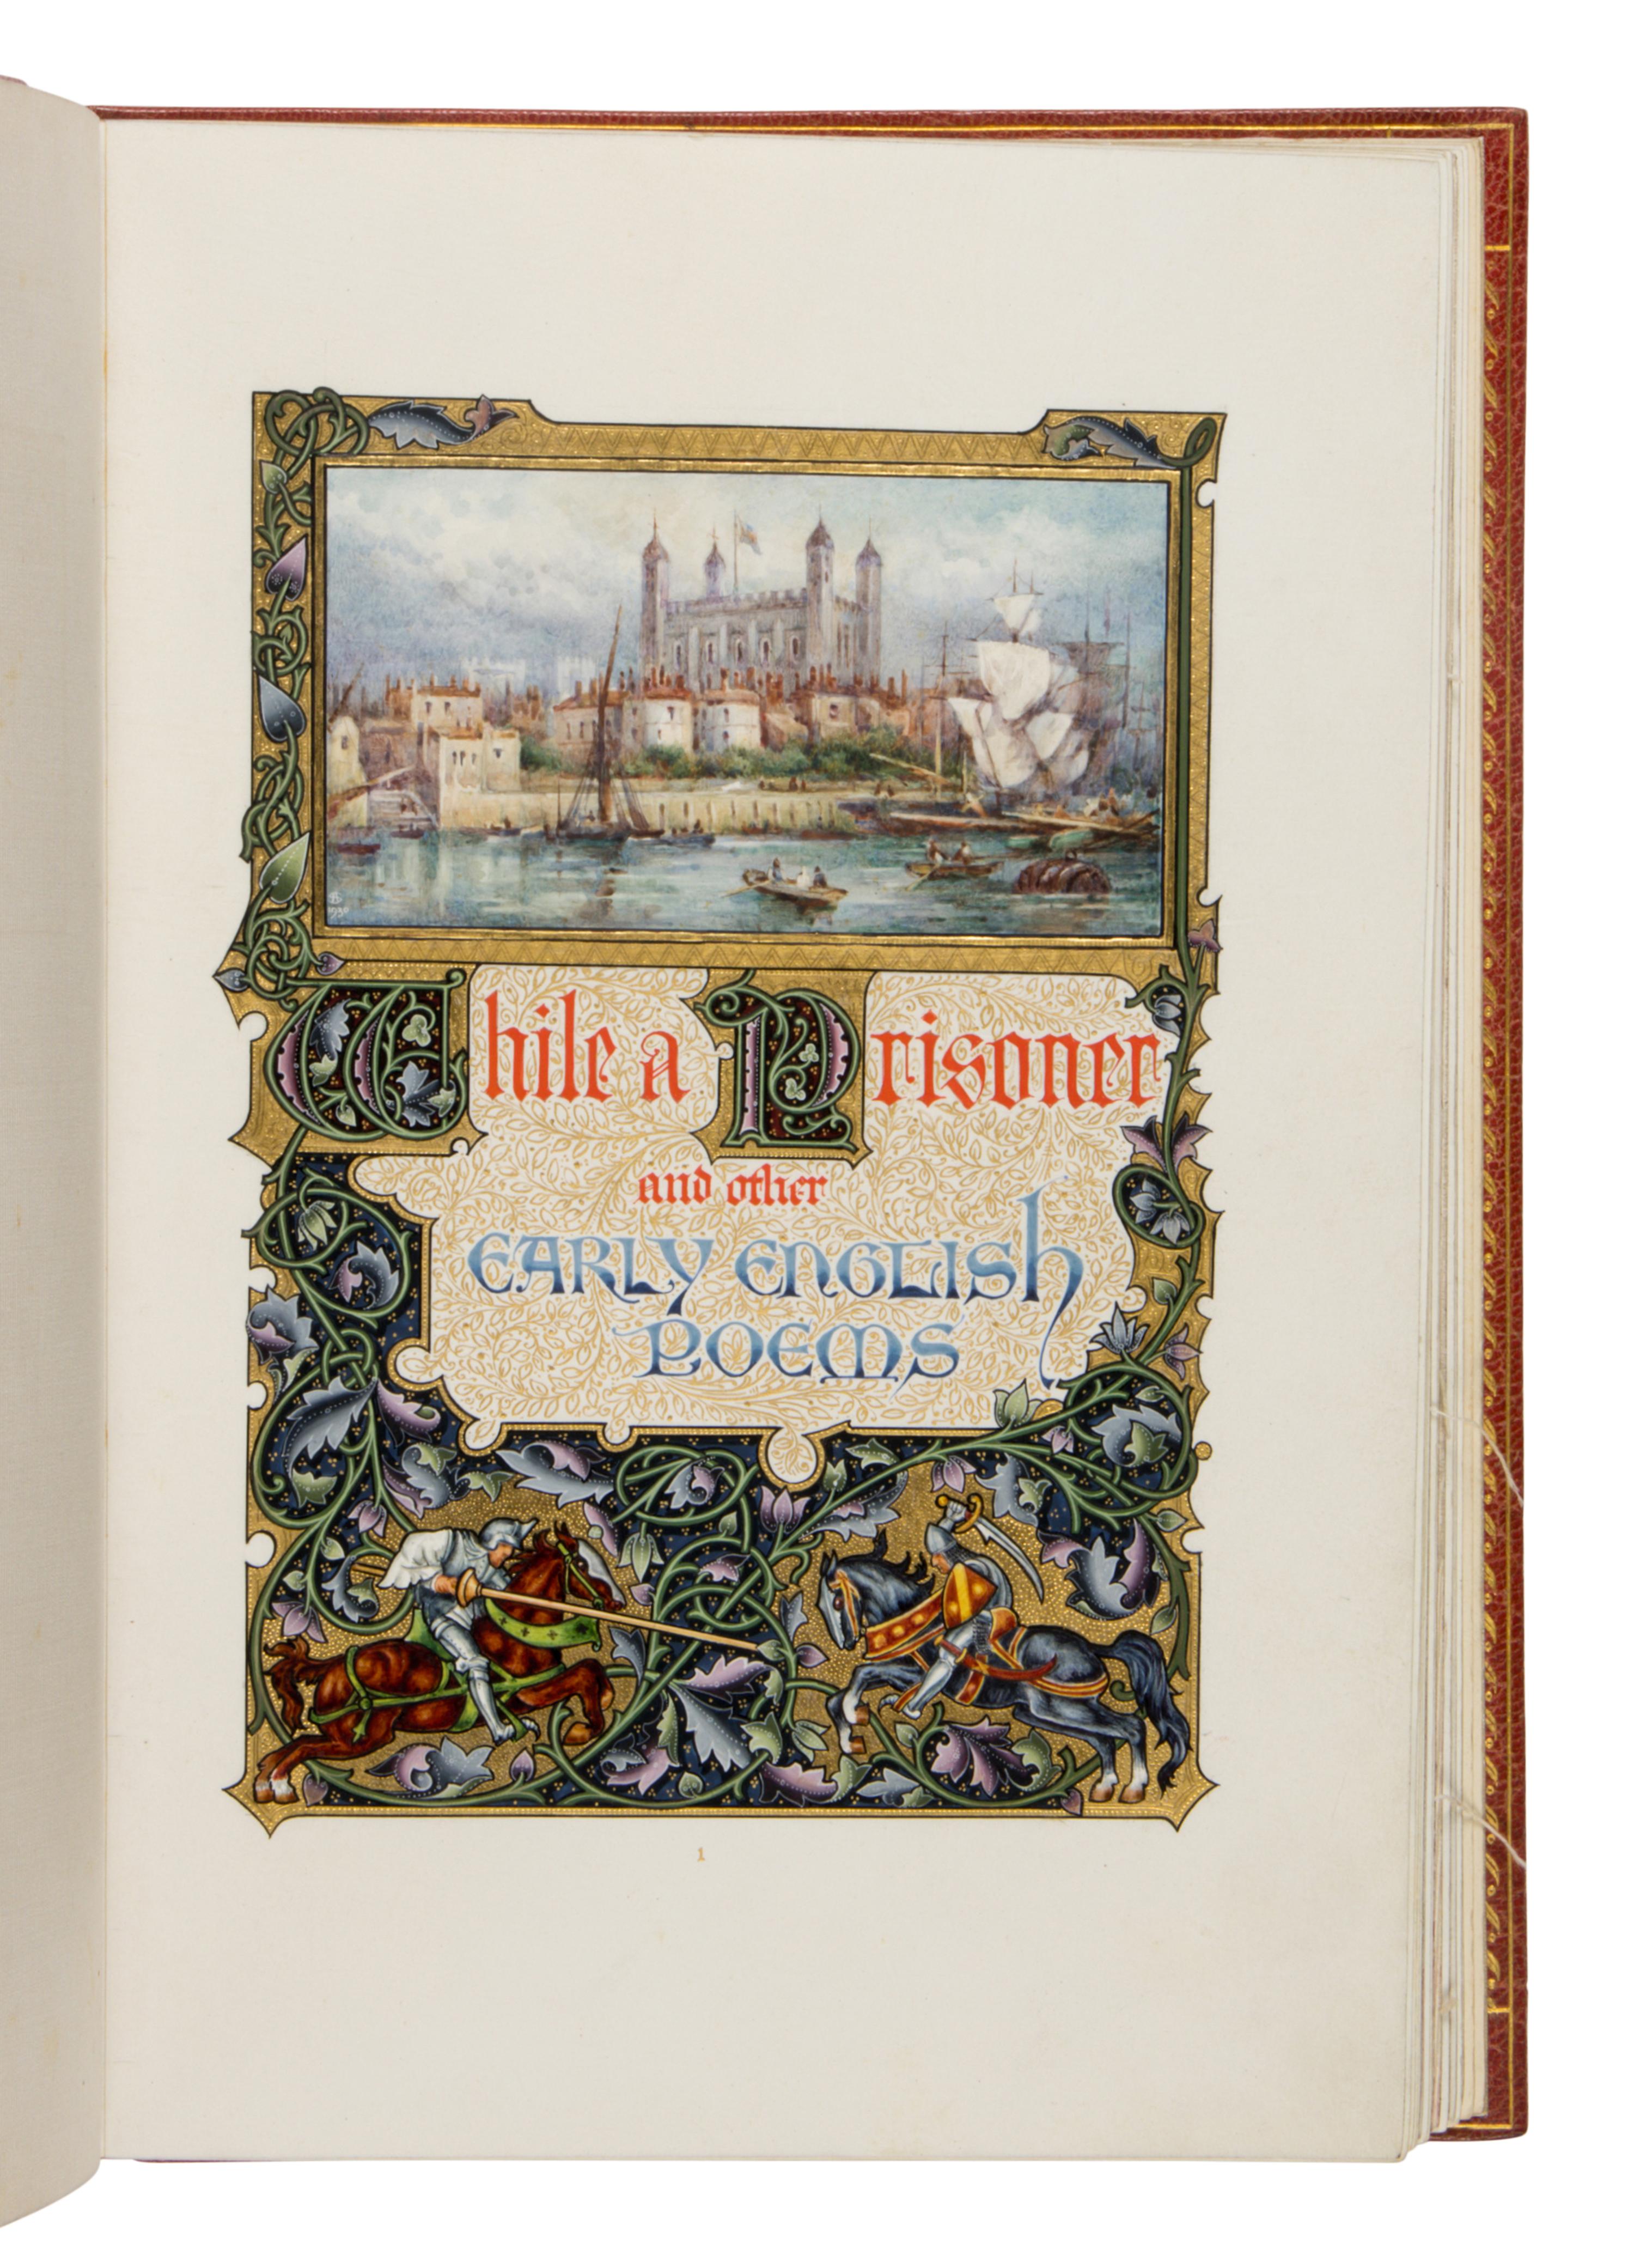 While a Prisoner
and other
EARLY ENGLISh
POEMS
1